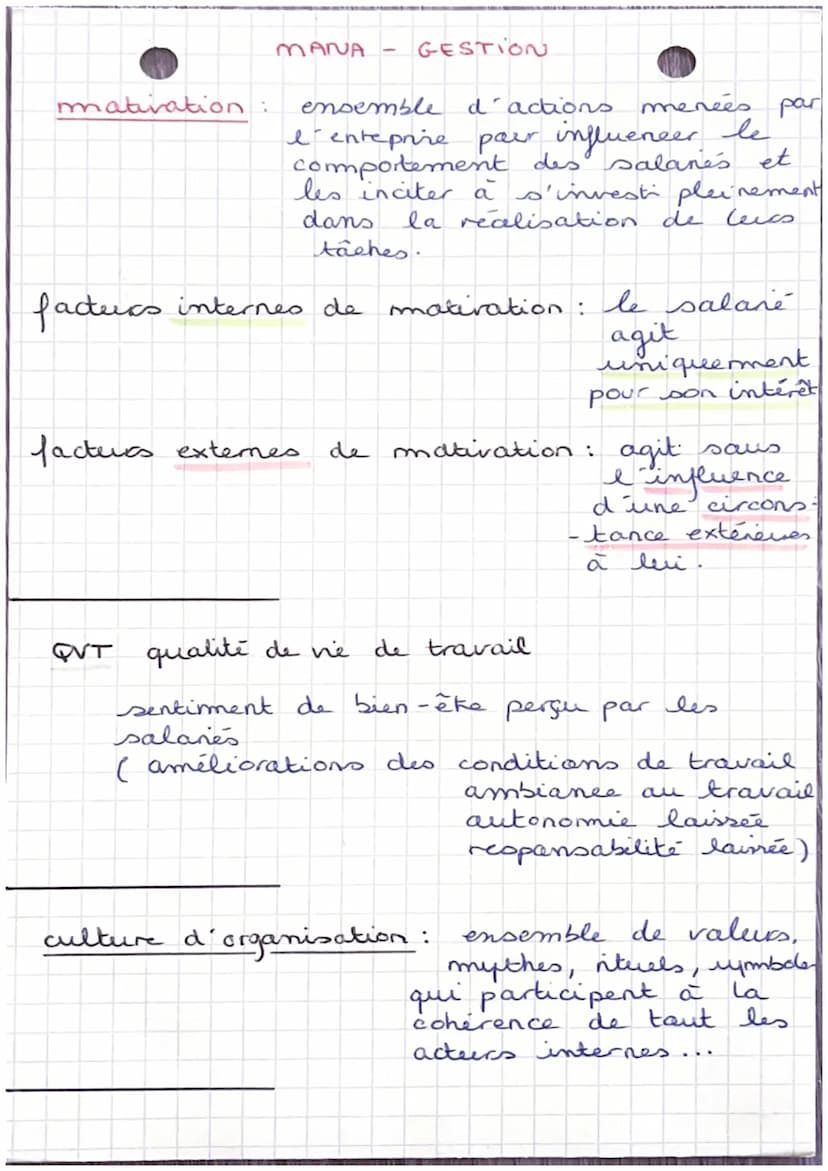 MANA - GESTION
motivation : ensemble d'actions menées par
l'entreprire pour influencer le
comportement des salariés et
les inciter à s'investi pleinement
dans la réalisation de leurs
tâches.
facteurs internes de motivation : le salarié
agit
uniquement
pour son intérêt
facteurs externes de motivation : agit sous
l'influence
d'une circons-
-tance extérieures
à lui.
QVT qualité de vie de travail
sentiment de bien-être perçu par les
salariés
( améliorations des conditions de travail
ambiance au travail
autonomie laissée
responsabilité laissée)
culture d'organisation : ensemble de valeurs,
mythes, rituels, symboles
qui participent à la
cohérence de tout les
acteurs internes...